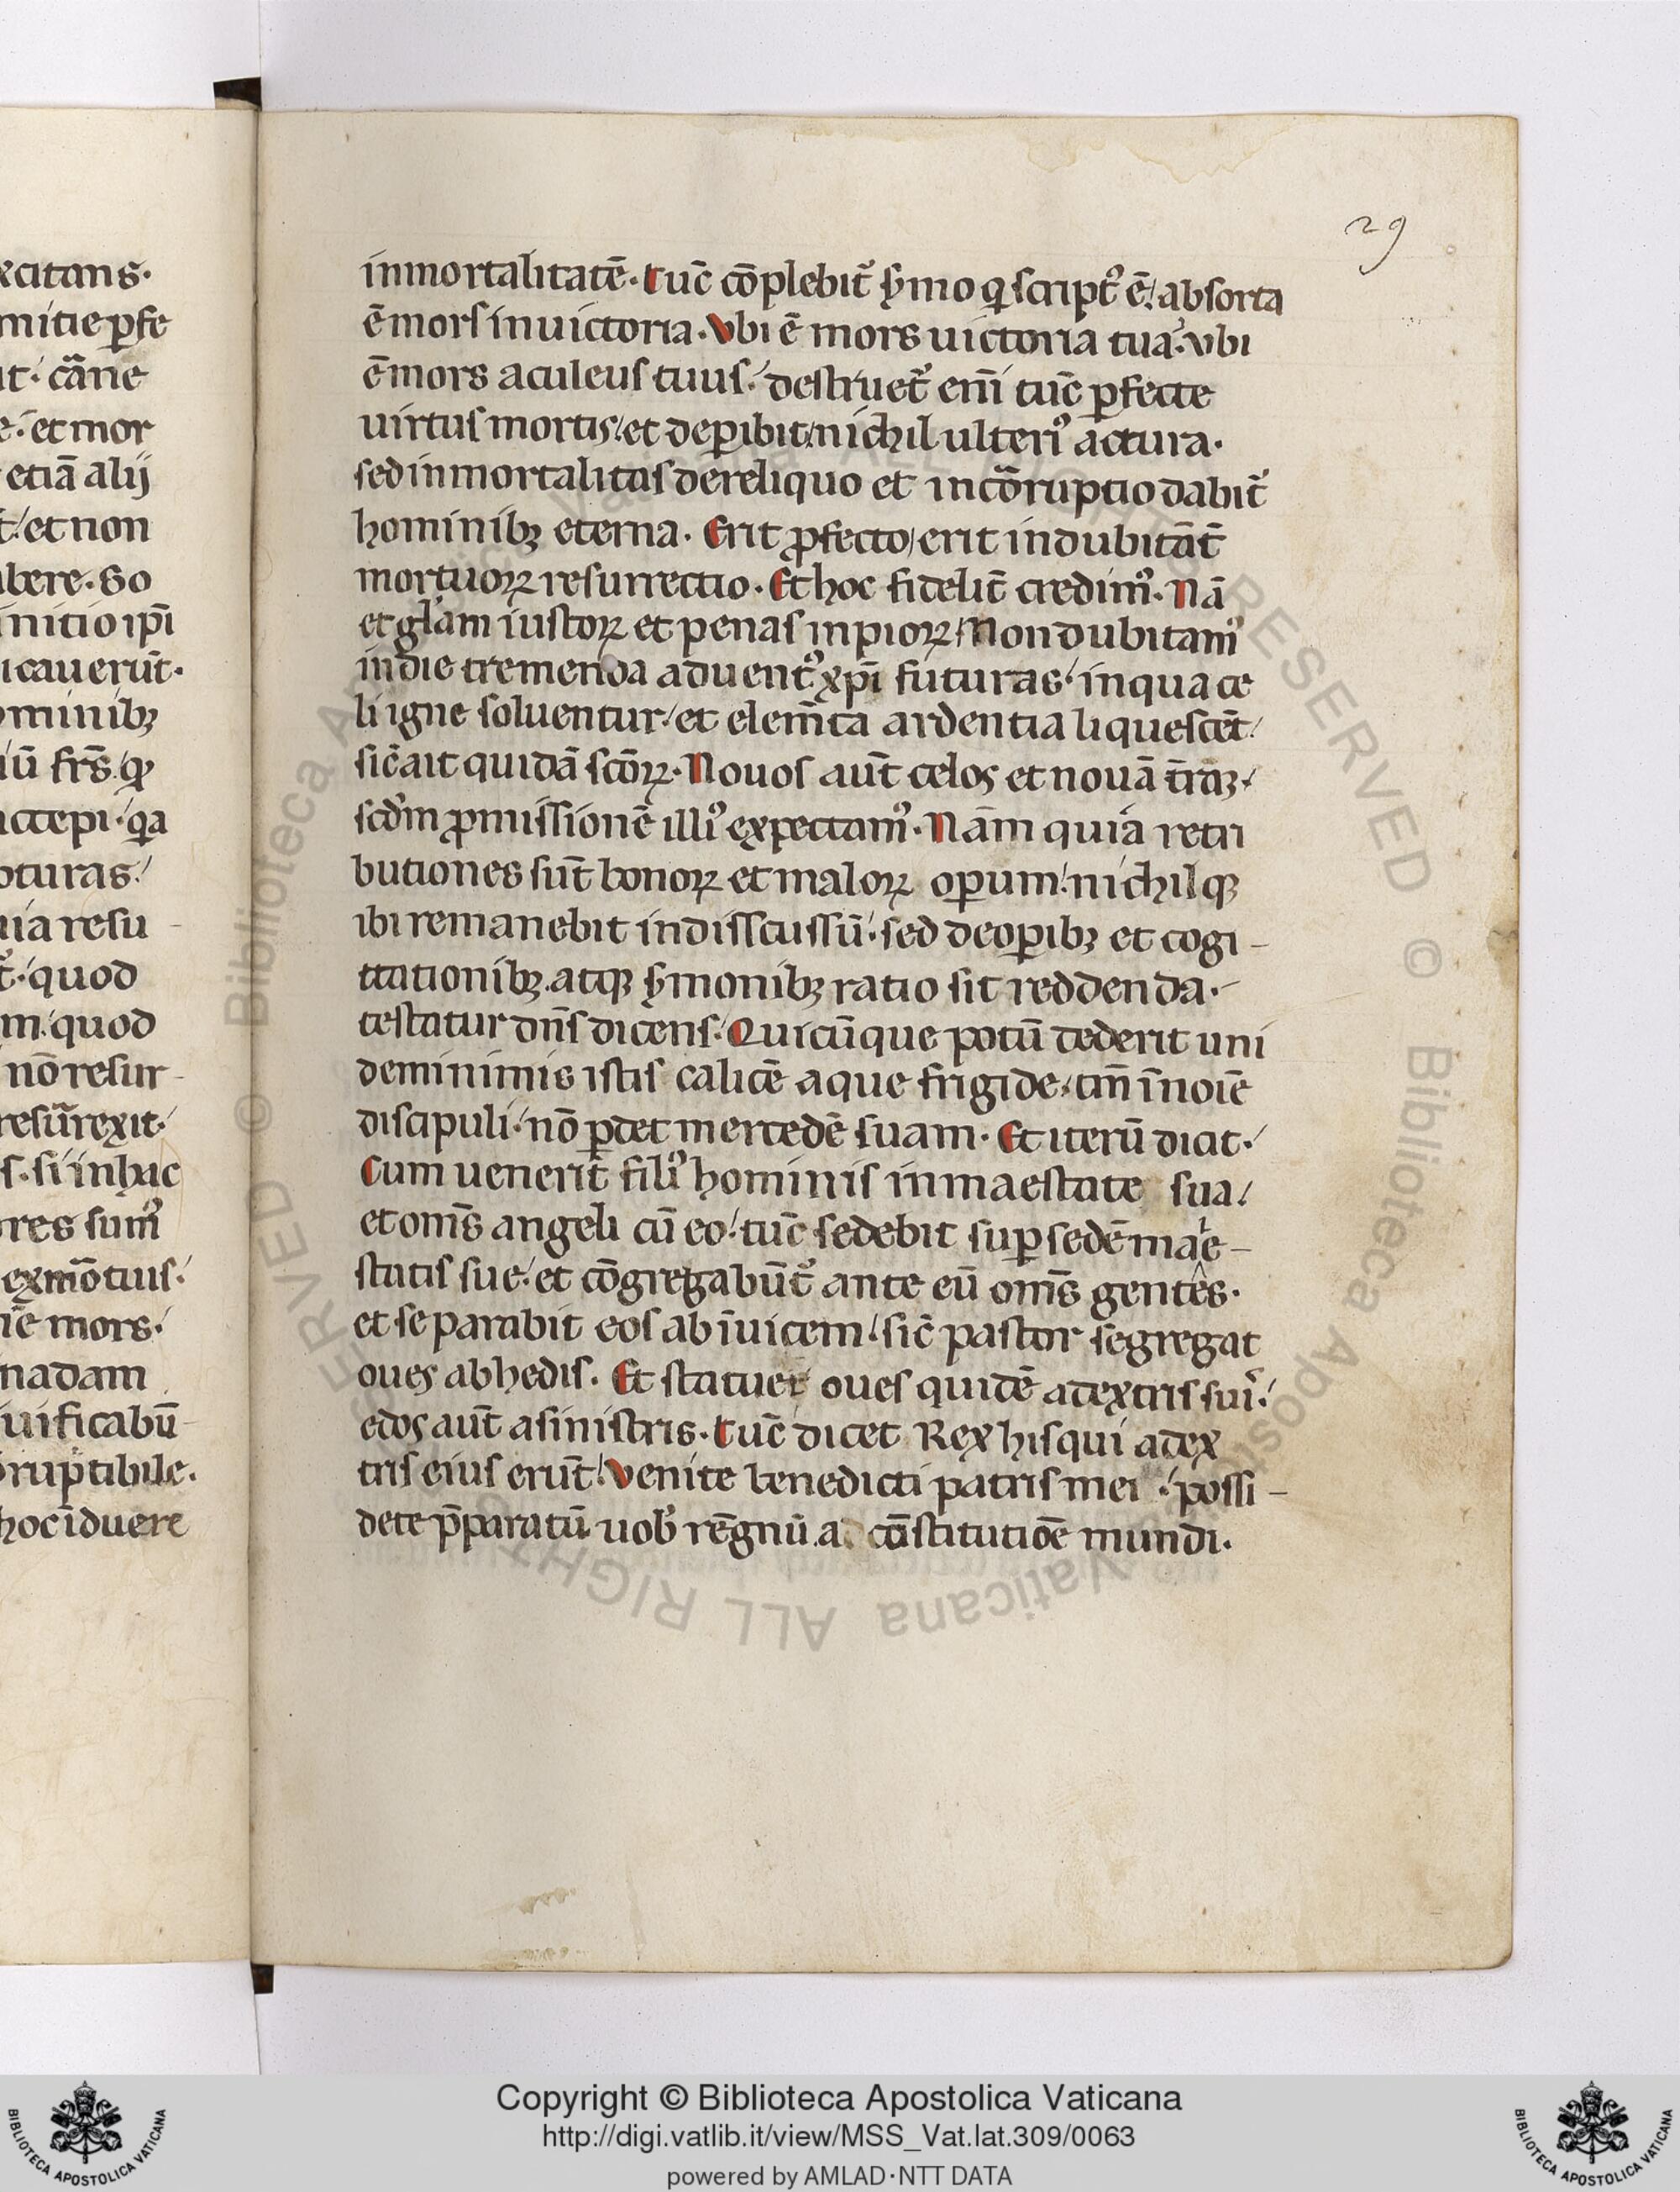 29
xcitans·
mitie ꝑfe
ut· car̄ne
e· et mor
etiā alij
et non
bere· So
initio ipī
icauerūt·
ominibꝫ
iū fr̄s
accepi· qa
pturas
uia resu-
quod
m· quod
nō resur-
resur̄rexit·
s· si in hac
res sum᾽
ex mōtuis·
mors·
in adam
uificabū-
orruptibile·
hoc īduere
inmortalitatē· Tūc cōplebit᷑ s̄mo q̇ script᾽ ē absorta
ē mors in uictoria· Vbi ē mors uictoria tua· vbi
ē mors aculeus tuus· destruet᷑ enī tūc ꝑfecte
uirtus mortis et deꝑibit nichil ulteri᾽ actura·
sed inmortalitas de reliquo et incōruptio dabit᷑
hominibꝫ eterna· Erit ꝓfecto erit indubitāt̄
mortuoꝝ resurrectio· Et hoc fidelit̄ credim᾽· Nā
et gl̄am iustoꝝ et penas inpioꝝ non dubitam᾽
in die tremenda aduent᾽ xp̄i futuras in qua ce
li igne soluentur et elem̄ta ardentia liquescēt
sic̄ ait quidā sc̄oꝝ· Nouos aūt celos et nouā t̄raꝫ
scd̄m ꝓmissionē illi᾽ expectam᾽· Nām quia retri
butiones sūt bonoꝝ et maloꝝ oꝑum nichilqꝫ
ibi remanebit indisscussū· sed de oꝑibꝫ et cogi-
ttationibꝫ atqꝫ s̄monibꝫ ratio sit reddenda·
testatur dn̄s dicens· Quicūque potū dederit uni
de minimis istis calicē aque frigide tm̄ ī noīe
discipuli nō ꝑdet mercedē suam· Et iterū dicit·
Cum uenerit fili᾽ hominis in maestate sua
et om̄s angeli cū eo tūc sedebit suꝑ sedē maie-
statis sue et cōgregabūt᷑ ante eū om̄s gentes·
et separabit eos ab īuicem sic̄ pastor segregat
oues ab hedis· Et statuet oues quidē a dextris suis
edos aūt a sinistris· Tūc dicet Rex his qui a dex
tris eius erūt Venite benedicti patris mei possi-
dete p̄paratū uob᾽ rēgnū a cōstitutiōe mundi·
Copyright © Biblioteca Apostolica Vaticana
http://digi.vatlib.it/view/MSS_Vat.lat.309/0063
powered by AMLAD·NTT DATA
BIBLIOTECA APOSTOLICA VATICANA
BIBLIOTECA APOSTOLICA VATICANA